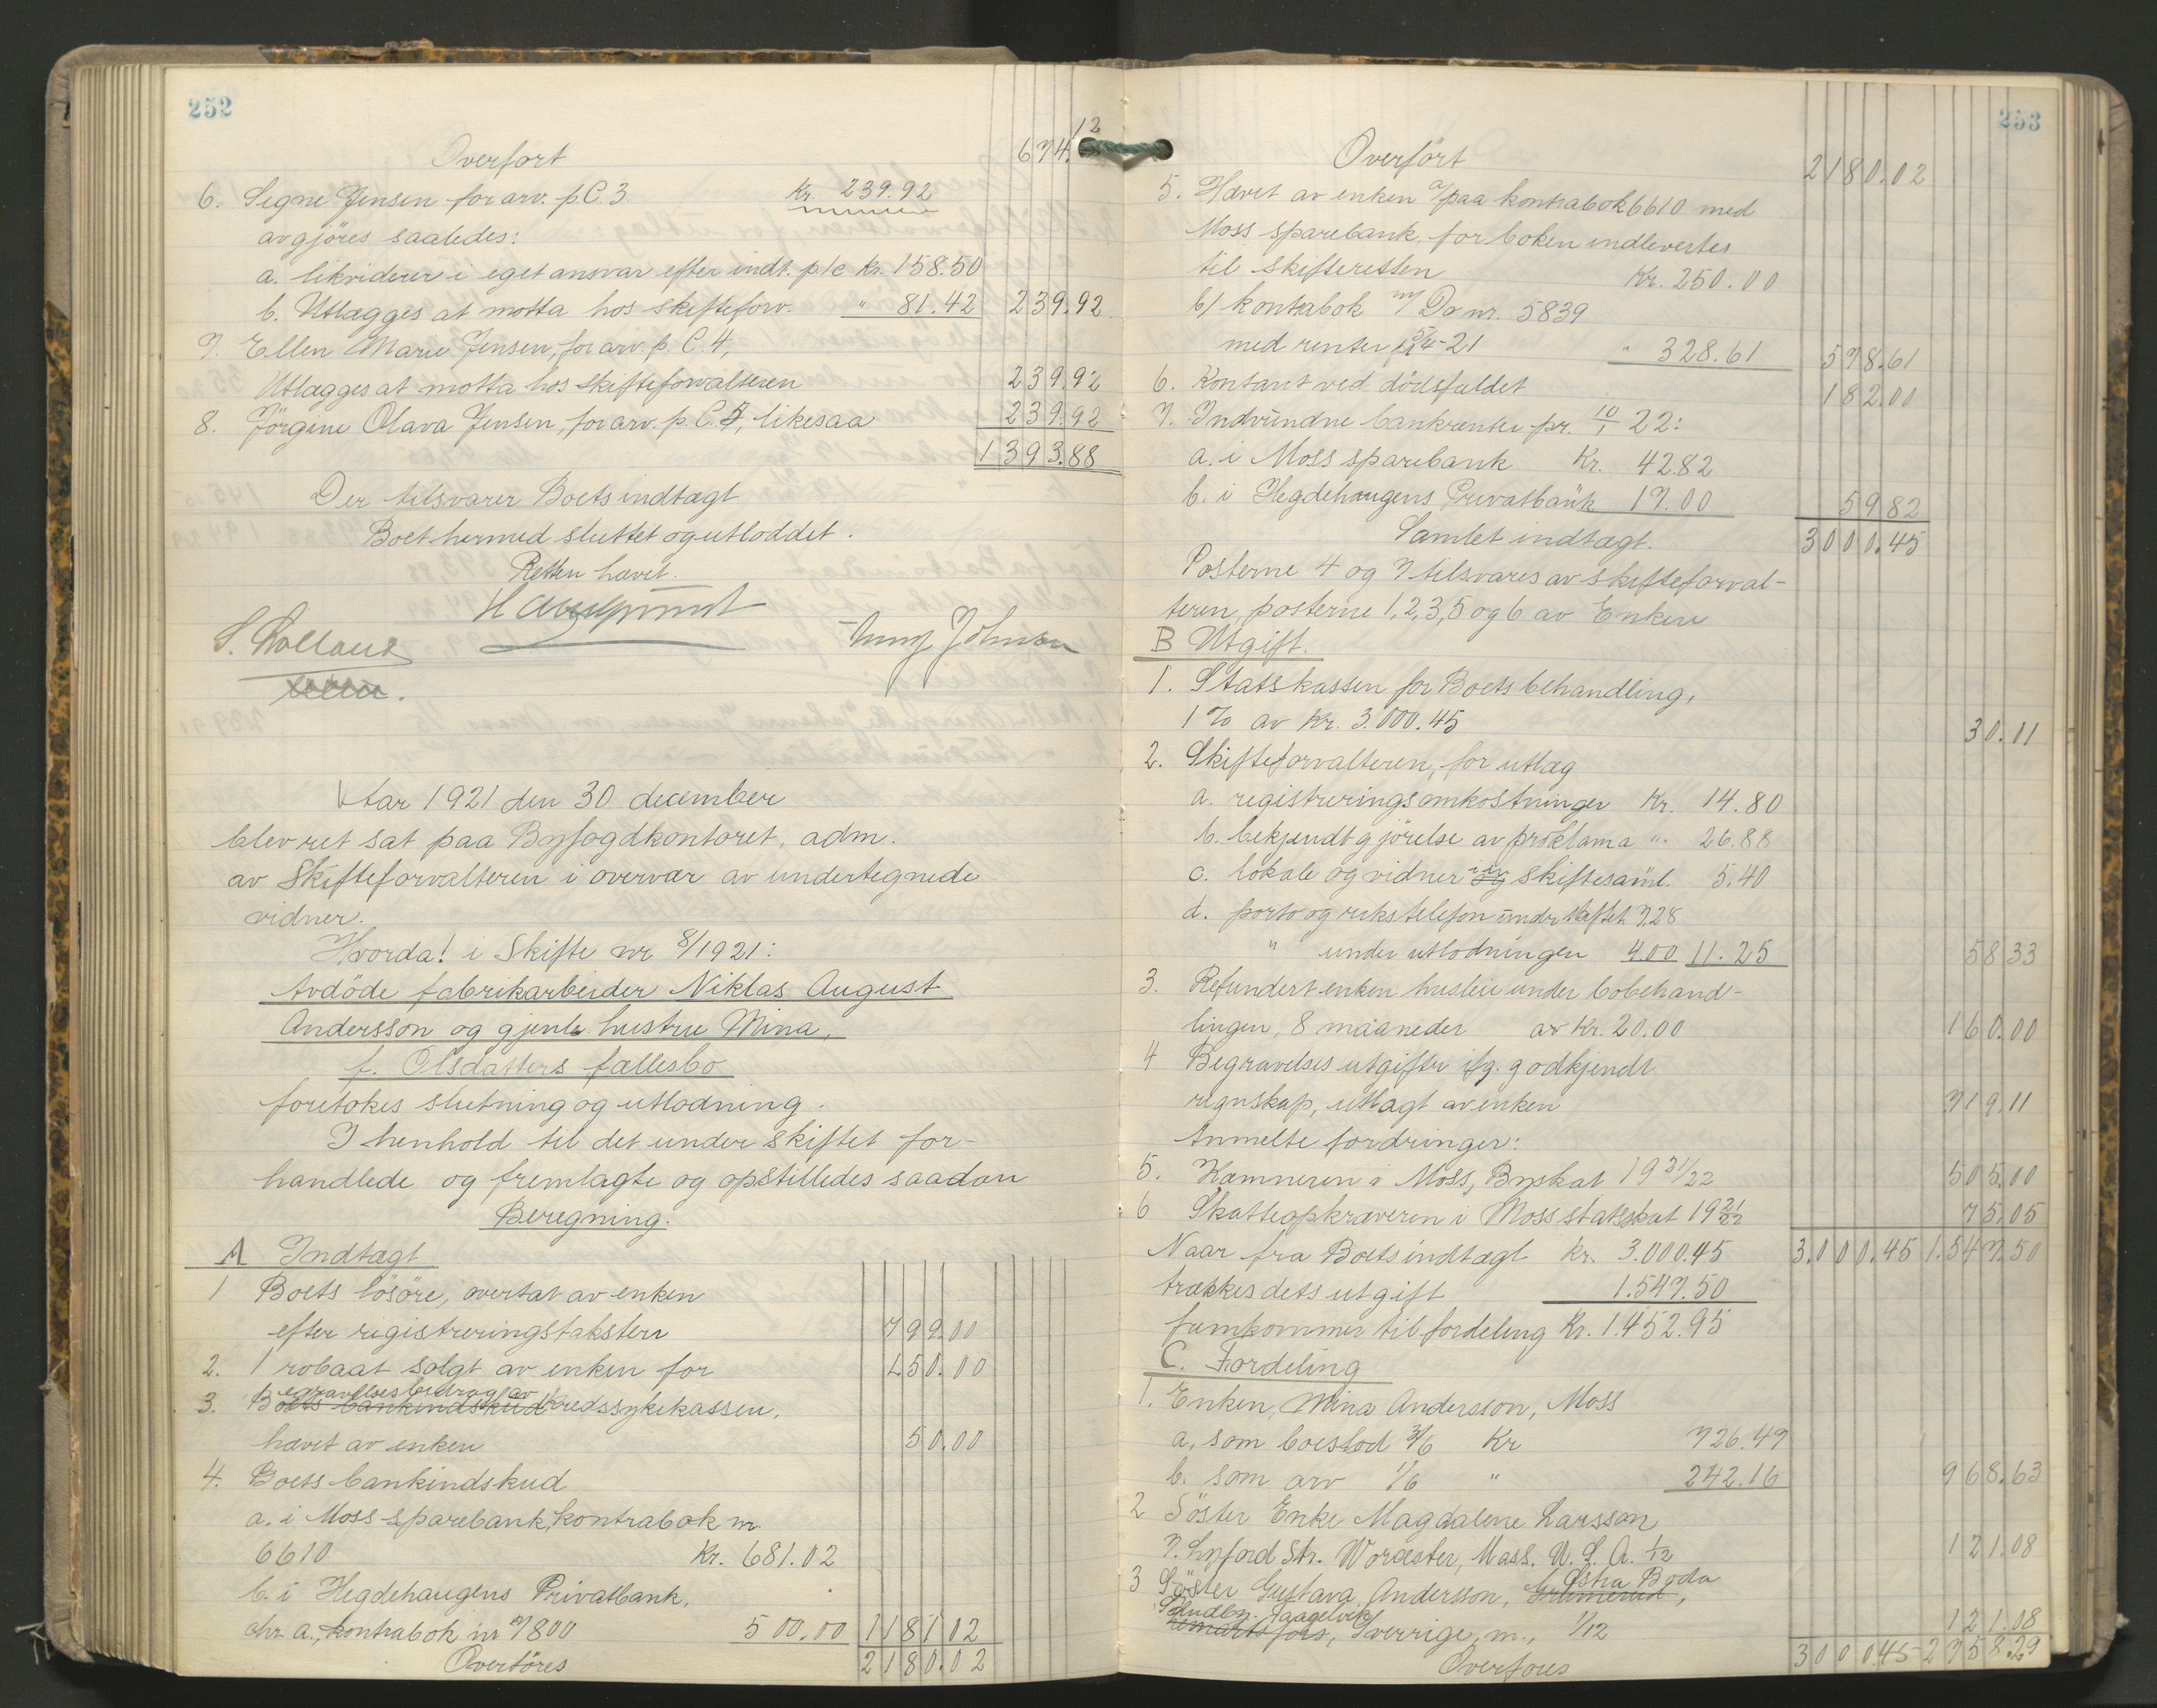 252
Overført 674.12
6. Signe Jensen for arv. p. C. 3 Kr. 239.92
avgjøres saaledes:
a. likviderer i eget ansvar efter indt. p 1c Kr. 158.50
b. Utlægges at motta hos skifteforv. " 81.42 239.92
7. Ellen Marie Jensen, for arv. p. C. 4,
Utlægges at motta hos skifteforvalteren 239.92
8. Jörgine Olava Jensen, for arv. p. C. 5, likesaa 239.92
1393.88
Der tilsvarer Boets indtægt
Boet hermed sluttet og utloddet.
Retten hævet.
Aar 1921 den 30 december
blev ret sat paa Byfogdkontoret, adm.
av Skifteforvalteren i overvær av undertegnede
vidner.
Hvorda! i Skifte nr 8/1921:
Avdöde fabrikarbeider Niklas August
Andersson og gjenl. hustru Mina,
f. Olsdatters fællesbo
foretokes slutning og utlodning.
I henhold til det under skiftet for-
handlede og fremlagte og opstilledes saadan
Beregning.
A Indtægt
1 Boets lösöre, overtat av enken
efter registreringstaksten 799.00
2. 1 robaat solgt av enken for 150.00
egravelsesbidrag av
3. Boets bankindskud Kredssykekassen,
hævet av enken 50.00
4. Boets bankindskud
a. i Moss sparebank, kontrabok nr
6610 Kr. 681.02
b. i Hegdehaugens Privatbank,
Chr. a., kontrabok nr 7800 500.00 1181.02
Overföres 2180.02
253
Overført 2180.02
5. Hævet av enken a/ paa kontrabok 6610 med
Moss sparebank, for boken indlevertes
til skifteretten Kr. 250.00
b/ kontrabok m/ Do nr. 5839
med renter til 5/4-21 " 328.61 578.61
6. Kontant ved dödsfaldet 182.00
7. Indvundne bankrenter pr. 10/1 22:
a. i Moss sparebank Kr. 42.82
b. i Hegdehaugens Privatbank 17.00 59.82
Samlet indtægt. 3000.45
Posterne 4 og 7 tilsvares av skifteforval-
teren, posterne 1, 2, 3, 5 og 6 av Enken
B Utgift.
1. Statskassen for Boets behandling,
1% av Kr. 3.000.45 30.11
2. Skifteforvalteren, for utlæg
a. registreringsomkostninger Kr. 14.80
b. bekjendtgjörelse av proklama " 26.88
c. lokale og vidner og skiftesaml. 5.40
d. porto og rikstelefon under skiftet 7.28
" under utlodningen 4.00 11.25 58.33
3. Refundert enken husleie under bobehand-
lingen, 8 maaneder av Kr. 20.00 160.00
4 Begravelses utgifter ifg. godkjendt
regnskap, utlagt av enken 719.11
Anmelte fordringer:
5. Kæmneren i Moss, Byskat 1921/22 505.00
6 Skatteopkræveren i Moss statsskat 1921/22 75.05
Naar fra Boets indtægt Kr. 3.000.45 3.000.45 1.547.50
trækkes dets utgift 1.547.50
fremkommer til fordeling Kr. 1.452.95
C. Fordeling
1. Enken, Mina Andersson, Moss
a, som boeslod 3/6 Kr 726.47
b. som arv 1/6 " 242.16 968.63
2 Söster Enke Magdalene Larsson
7. Lyford Str. Worcester, Mass. U. S. A. 1/12 121.08
Östra Boda
3 Söster Gustava Andersson,
Taagelvik
Sverrige, m., 1/12 121.08
Overføres 3000.45 2758.29